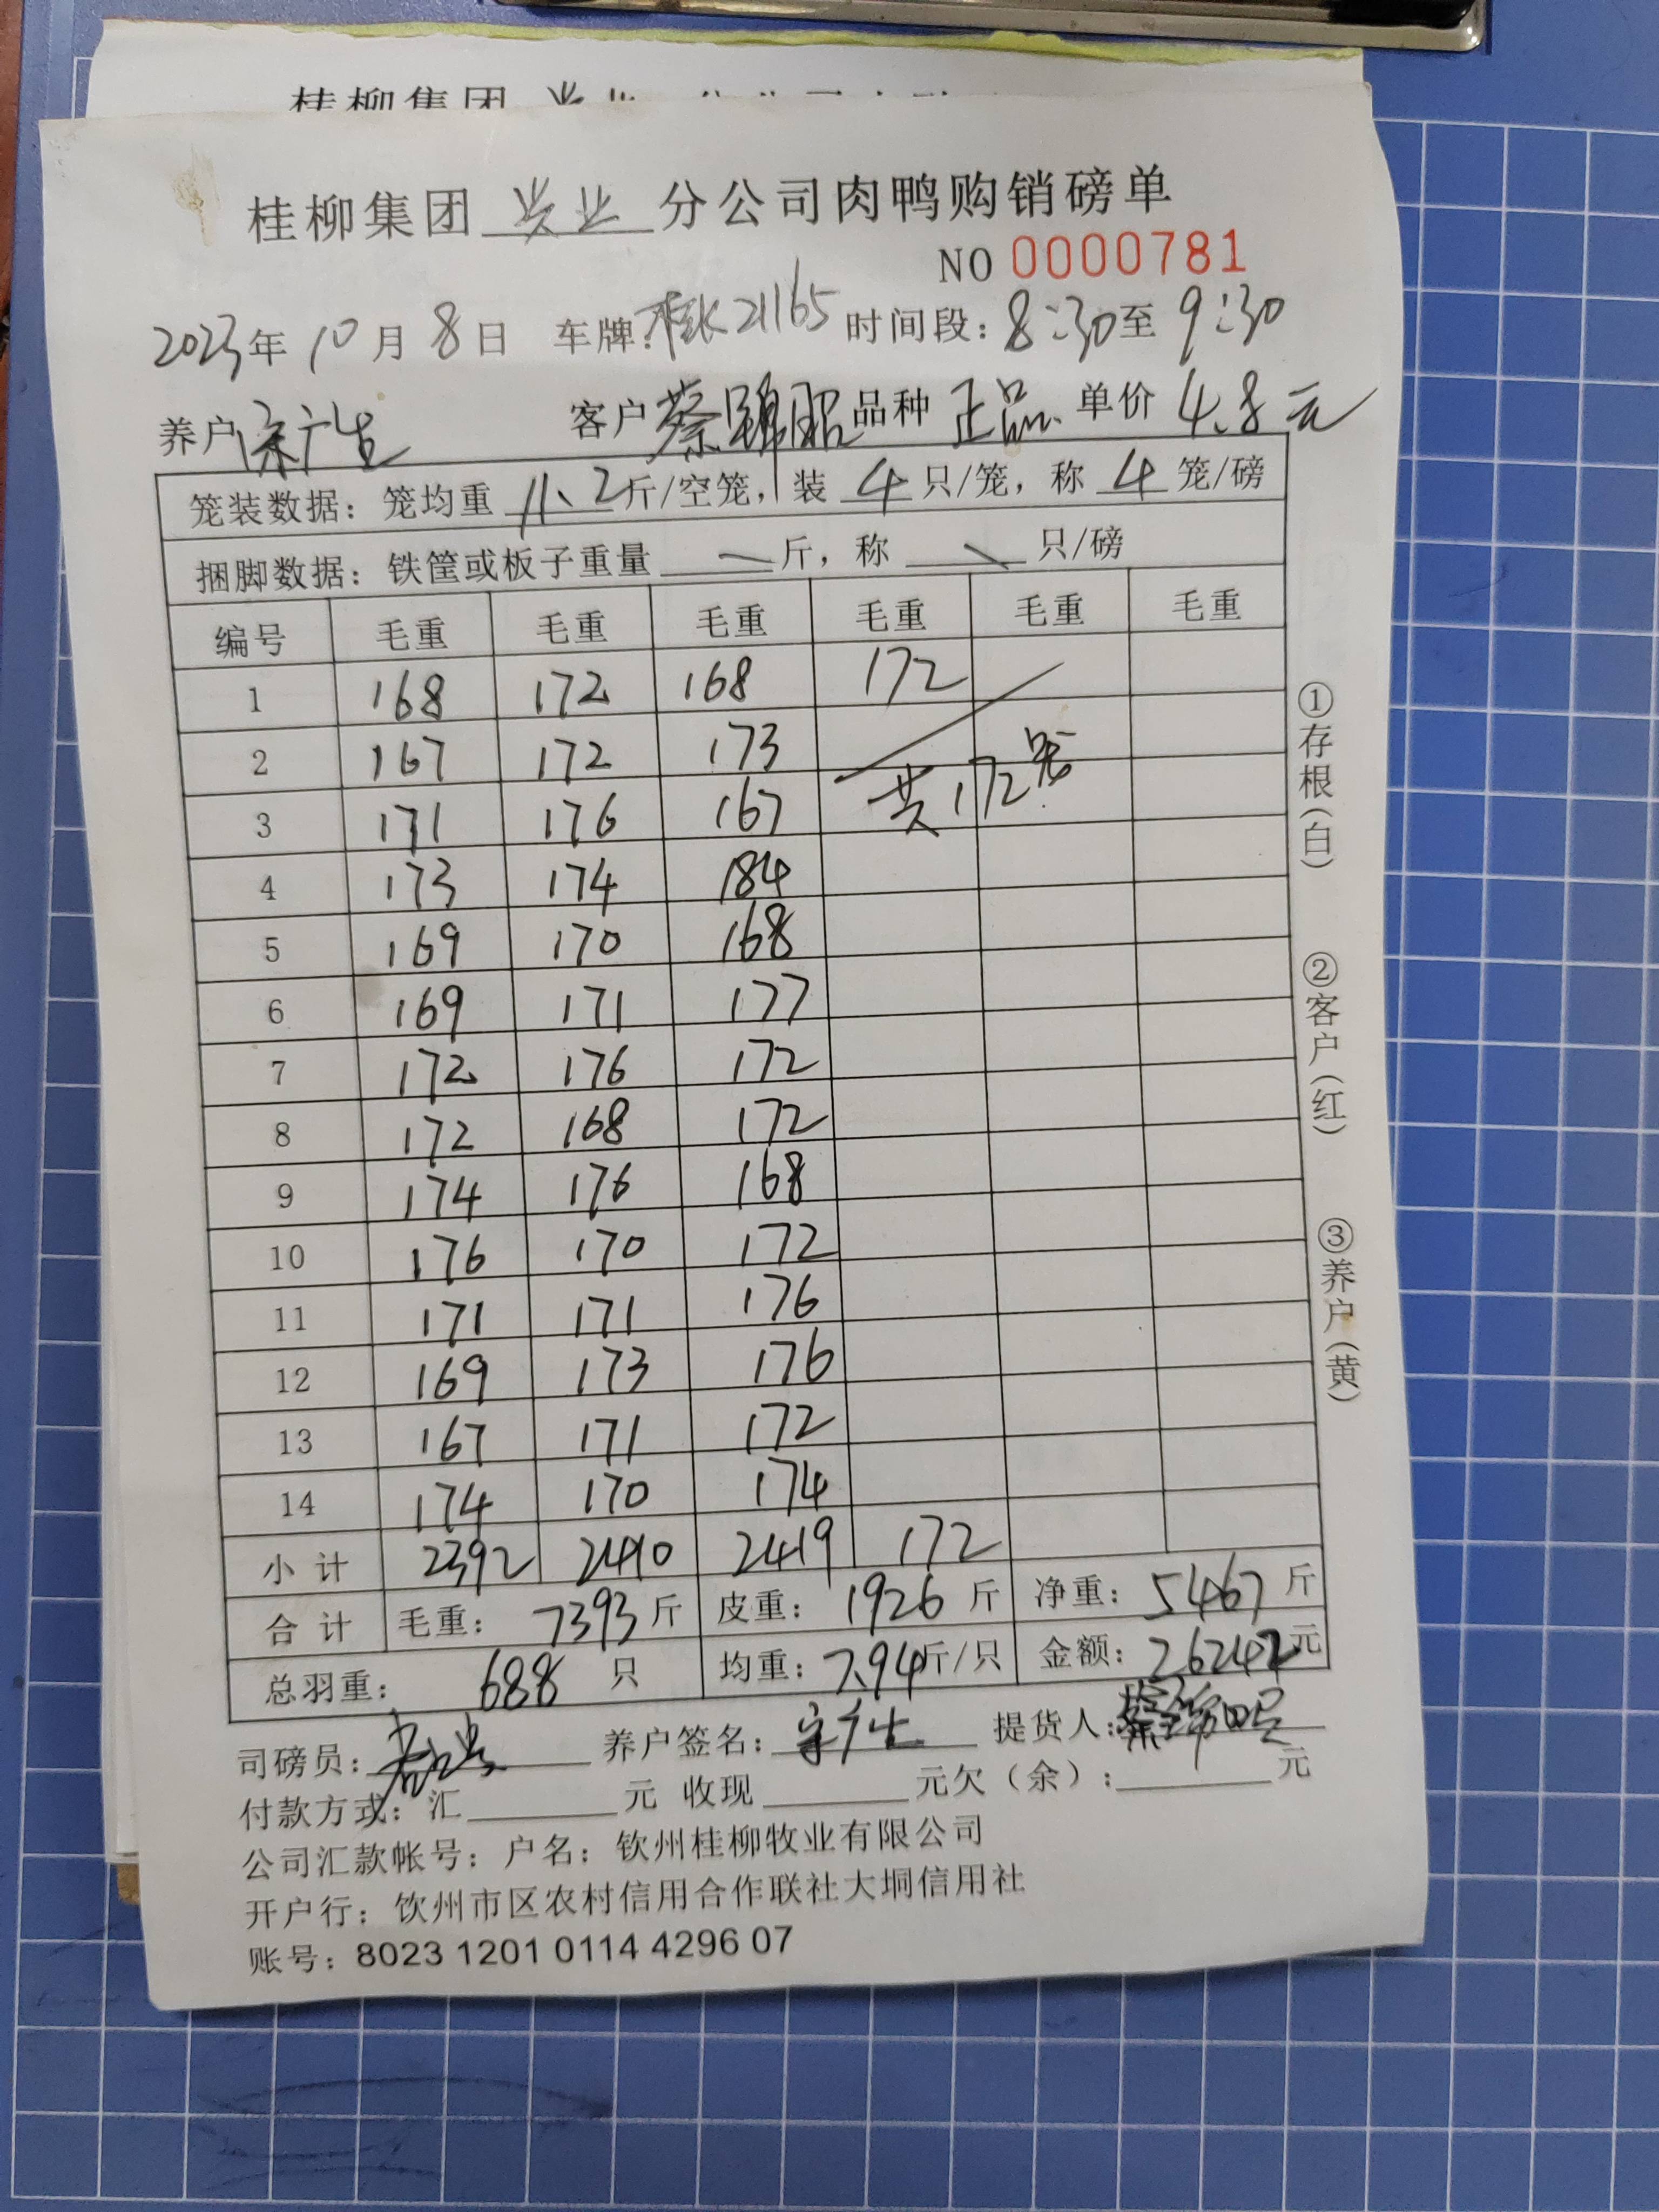 桂柳集团
桂柳集团 兴业 分公司肉鸭购销磅单
NO 0000781
2023年 10月 8日 车牌:桂K21165 时间段: 8:30至 9:30
养户 宋广生 客户 蔡锦昭 品种 正品 单价 4.8元
笼装数据: 笼均重 11.2斤/空笼, 装 4 只/笼, 称 4 笼/磅
捆脚数据: 铁筐或板子重量 — 斤, 称 — 只/磅
编号 毛重 毛重 毛重 毛重 毛重 毛重
1 168 172 168 172
2 167 172 173
3 171 176 167 共172笼
4 173 174 184
5 169 170 168
6 169 171 177
7 172 176 172
8 172 168 172
9 174 176 168
10 176 170 172
11 171 171 176
12 169 173 176
13 167 171 172
14 174 170 174
小计 2392 2410 2419 172
合计 毛重: 7393斤 皮重: 1926斤 净重: 5467斤
总羽重: 688 只 均重: 7.94斤/只 金额: 26242元
司磅员: 养户签名: 宋广生 提货人: 蔡锦昭
付款方式: 汇 元 收现 元欠(余): 元
公司汇款帐号: 户名: 钦州桂柳牧业有限公司
开户行: 钦州市区农村信用合作联社大垌信用社
账号: 8023 1201 0114 4296 07
①存根(白)
②客户(红)
③养户(黄)